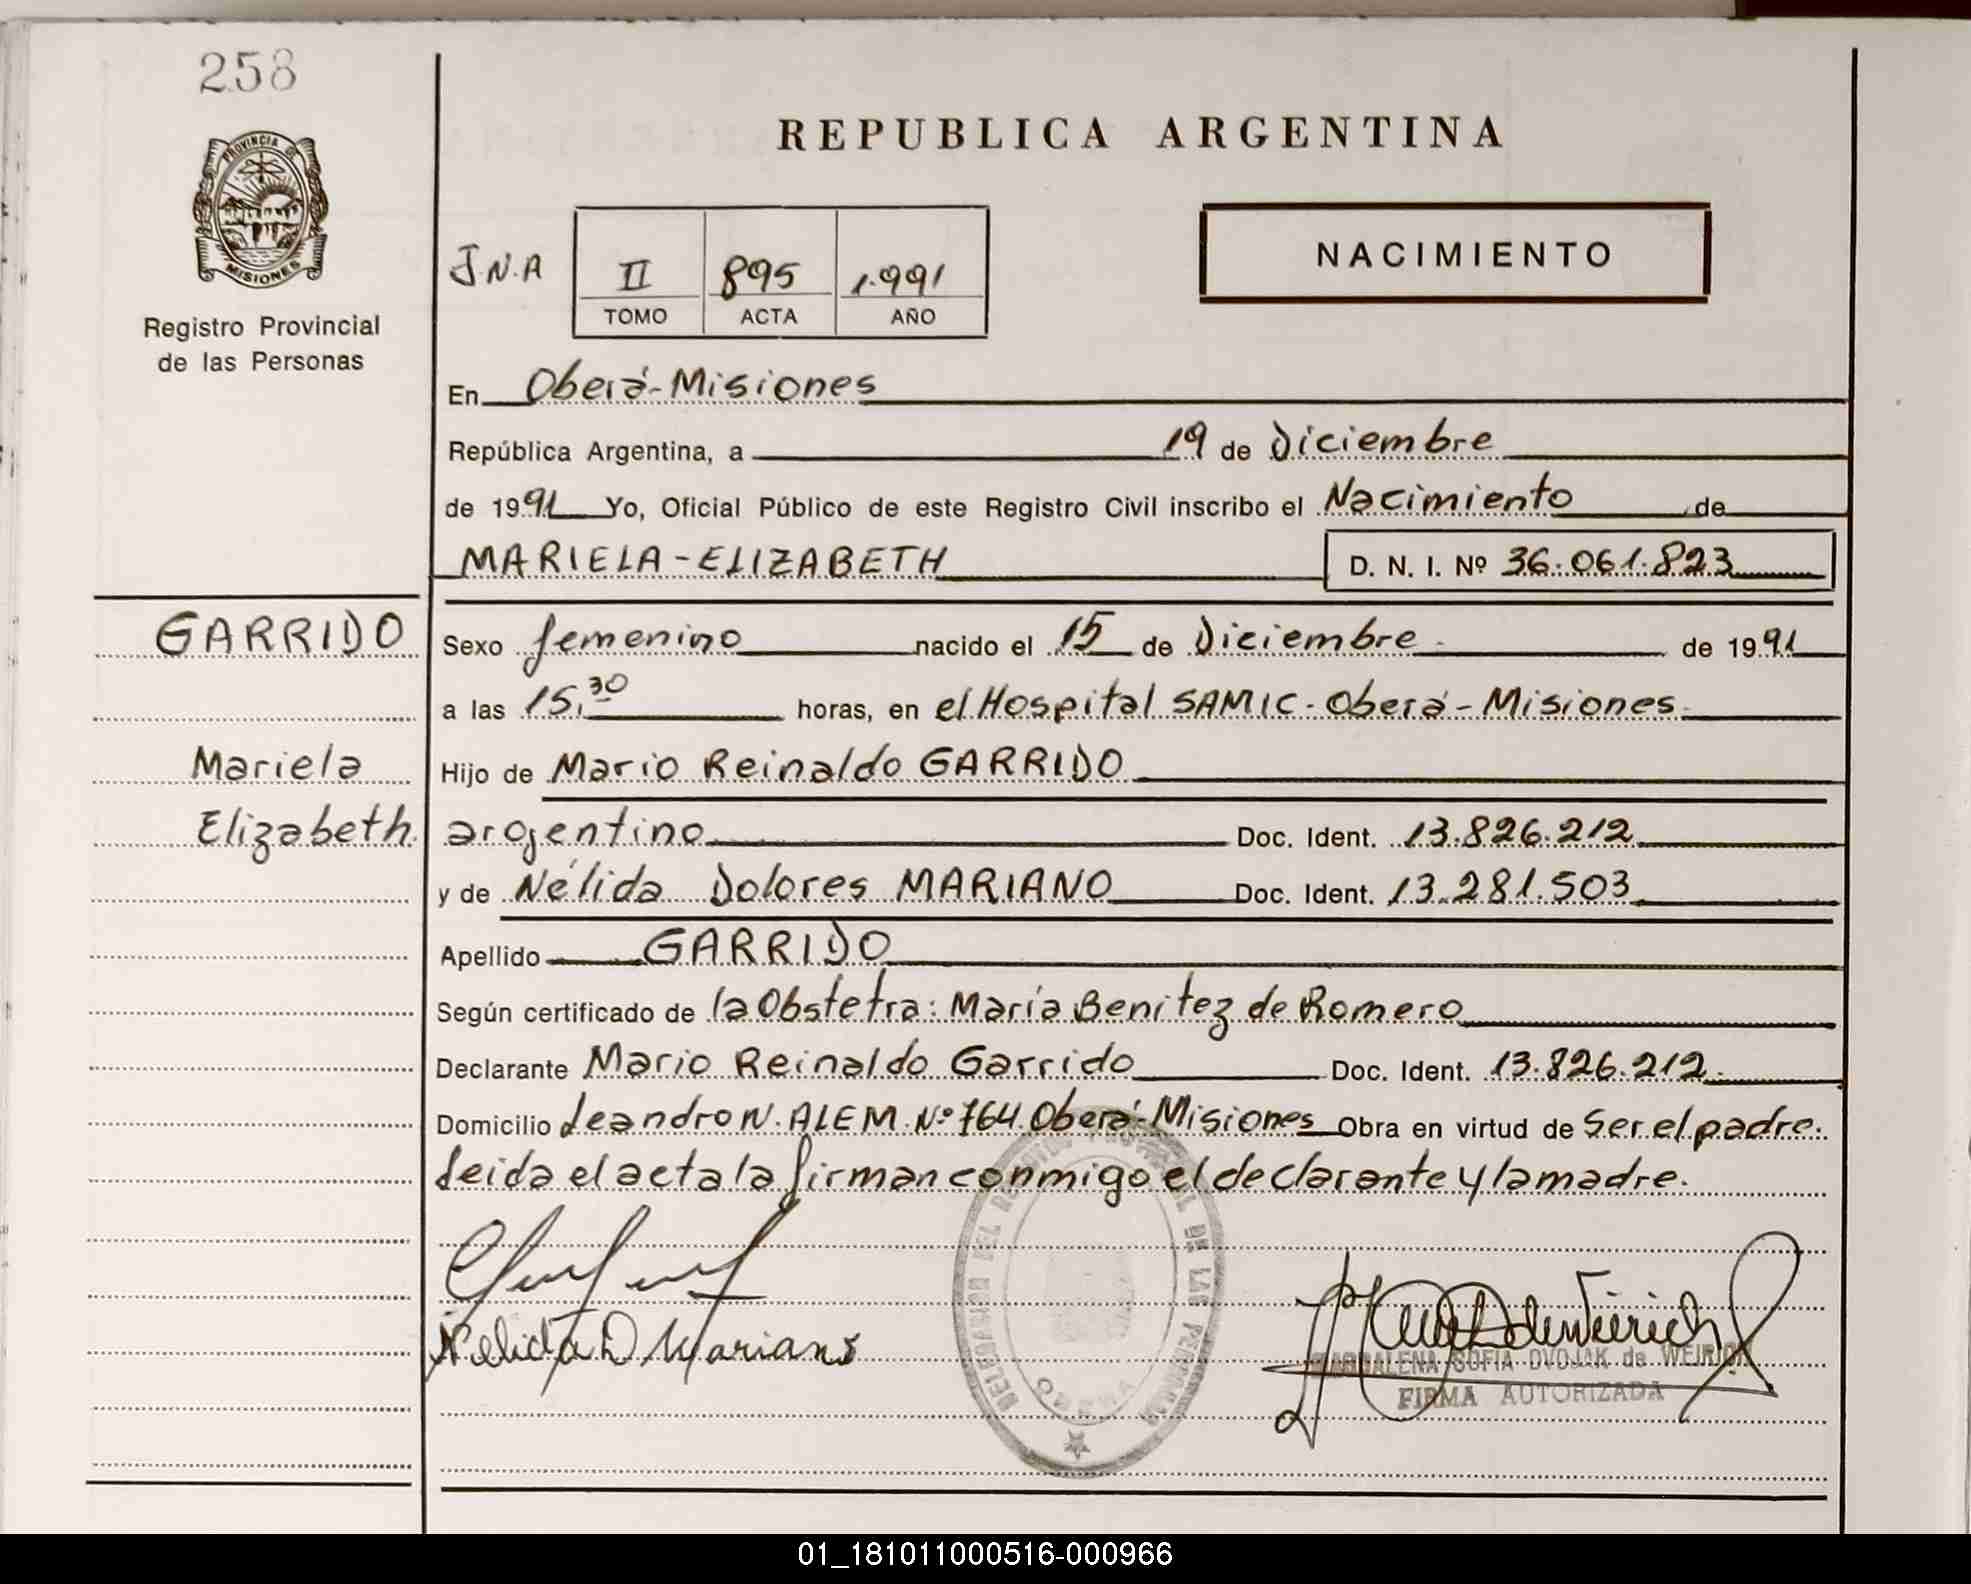 258
PROVINCIA DE
MISIONES
Registro Provincial
de las Personas
REPUBLICA ARGENTINA
NACIMIENTO
J.N.A
II 895 1.991
TOMO ACTA AÑO
En Oberá-Misiones
República Argentina, a 19 de Diciembre
de 1991 Yo, Oficial Público de este Registro Civil inscribo el Nacimiento de
MARIELA-ELIZABETH D. N. I. Nº 36.061.823
GARRIDO
Mariela
Elizabeth.
Sexo femenino nacido el 15 de Diciembre de 1991
a las 15,30 horas, en el Hospital SAMIC-Oberá-Misiones
Hijo de Mario Reinaldo GARRIDO
argentino Doc. Ident. 13.826.212
y de Nélida Dolores MARIANO Doc. Ident. 13.281.503
Apellido GARRIDO
Según certificado de la Obstetra: María Benitez de Romero
Declarante Mario Reinaldo Garrido Doc. Ident. 13.826.212.
Domicilio Leandro N. ALEM. Nº 764. Oberá-Misiones Obra en virtud de Ser el padre.
Leida el acta la firman conmigo el declarante y la madre.
Nelida D Mariano
DELEGACION DEL REGISTRO PROVINCIAL DE LAS PERSONAS
OBERA
MAGDALENA SOFIA DVOJAK de WEIRICH
FIRMA AUTORIZADA
01_181011000516-000966